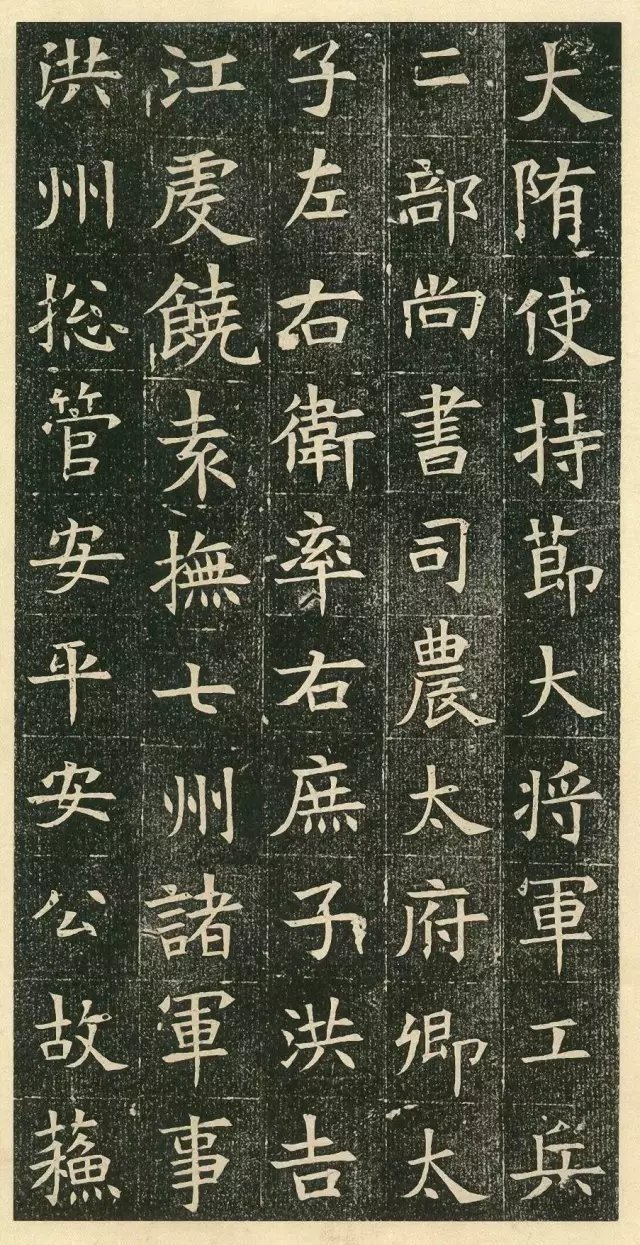 大隋使持節大將軍工兵
二部尚書司農太府卿太
子左右衛率右庶子洪吉
江虔饒袁撫七州諸軍事
洪州摠管安平安公故蘓